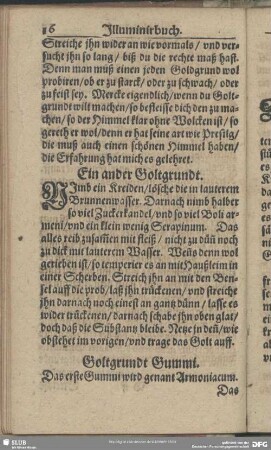 16 Illuminirbuch.
Streiche jhn wider an wie vormals / vnd ver-
sucht jhn so lang / biß du die rechte maß hast.
Denn man muß einen jeden Goldgrund wol
probiren / ob er zu starck / oder zu schwach / oder
zu feist sey. Mercke eigendlich / wenn du Golt-
grundt wilt machen / so befleisse dich den zu ma-
chen / so der Himmel klar ohne Wolcken ist / so
gereth er wol / denn er hat seine art wie Presilg /
die muß auch einen schönen Himmel haben /
die Erfahrung hat mich es gelehret.
Ein ander Goltgrundt.
NImb ein Kreiden / lösche die in lauterem
Brunnenwasser. Darnach nimb halber
so viel Zuckerkandel / vnd so viel Boli ar-
meni / vnd ein klein wenig Serapinum. Das
alles reib zusam̃en mit fleiß / nicht zu dün̄ noch
zu dick mit lauterem Wasser. Wen̄s denn wol
gerieben ist / so temperier es an mit Haußleim in
einer Scherben. Streich jhn an mit den Ben-
sel auff die prob / laß jhn trückenen / vnd streiche
jhn darnach noch einest an gantz dün̄ / lasse es
wider trückenen / darnach schabe jhn oben glat /
doch daß die Substantz bleibe. Netze jn den̄ / wie
obstehet im vorigen / vnd trage das Golt auff.
Goltgrundt Gummi.
Das erste Gummi wird genant Armoniacum.
Das
SLUB
DFG